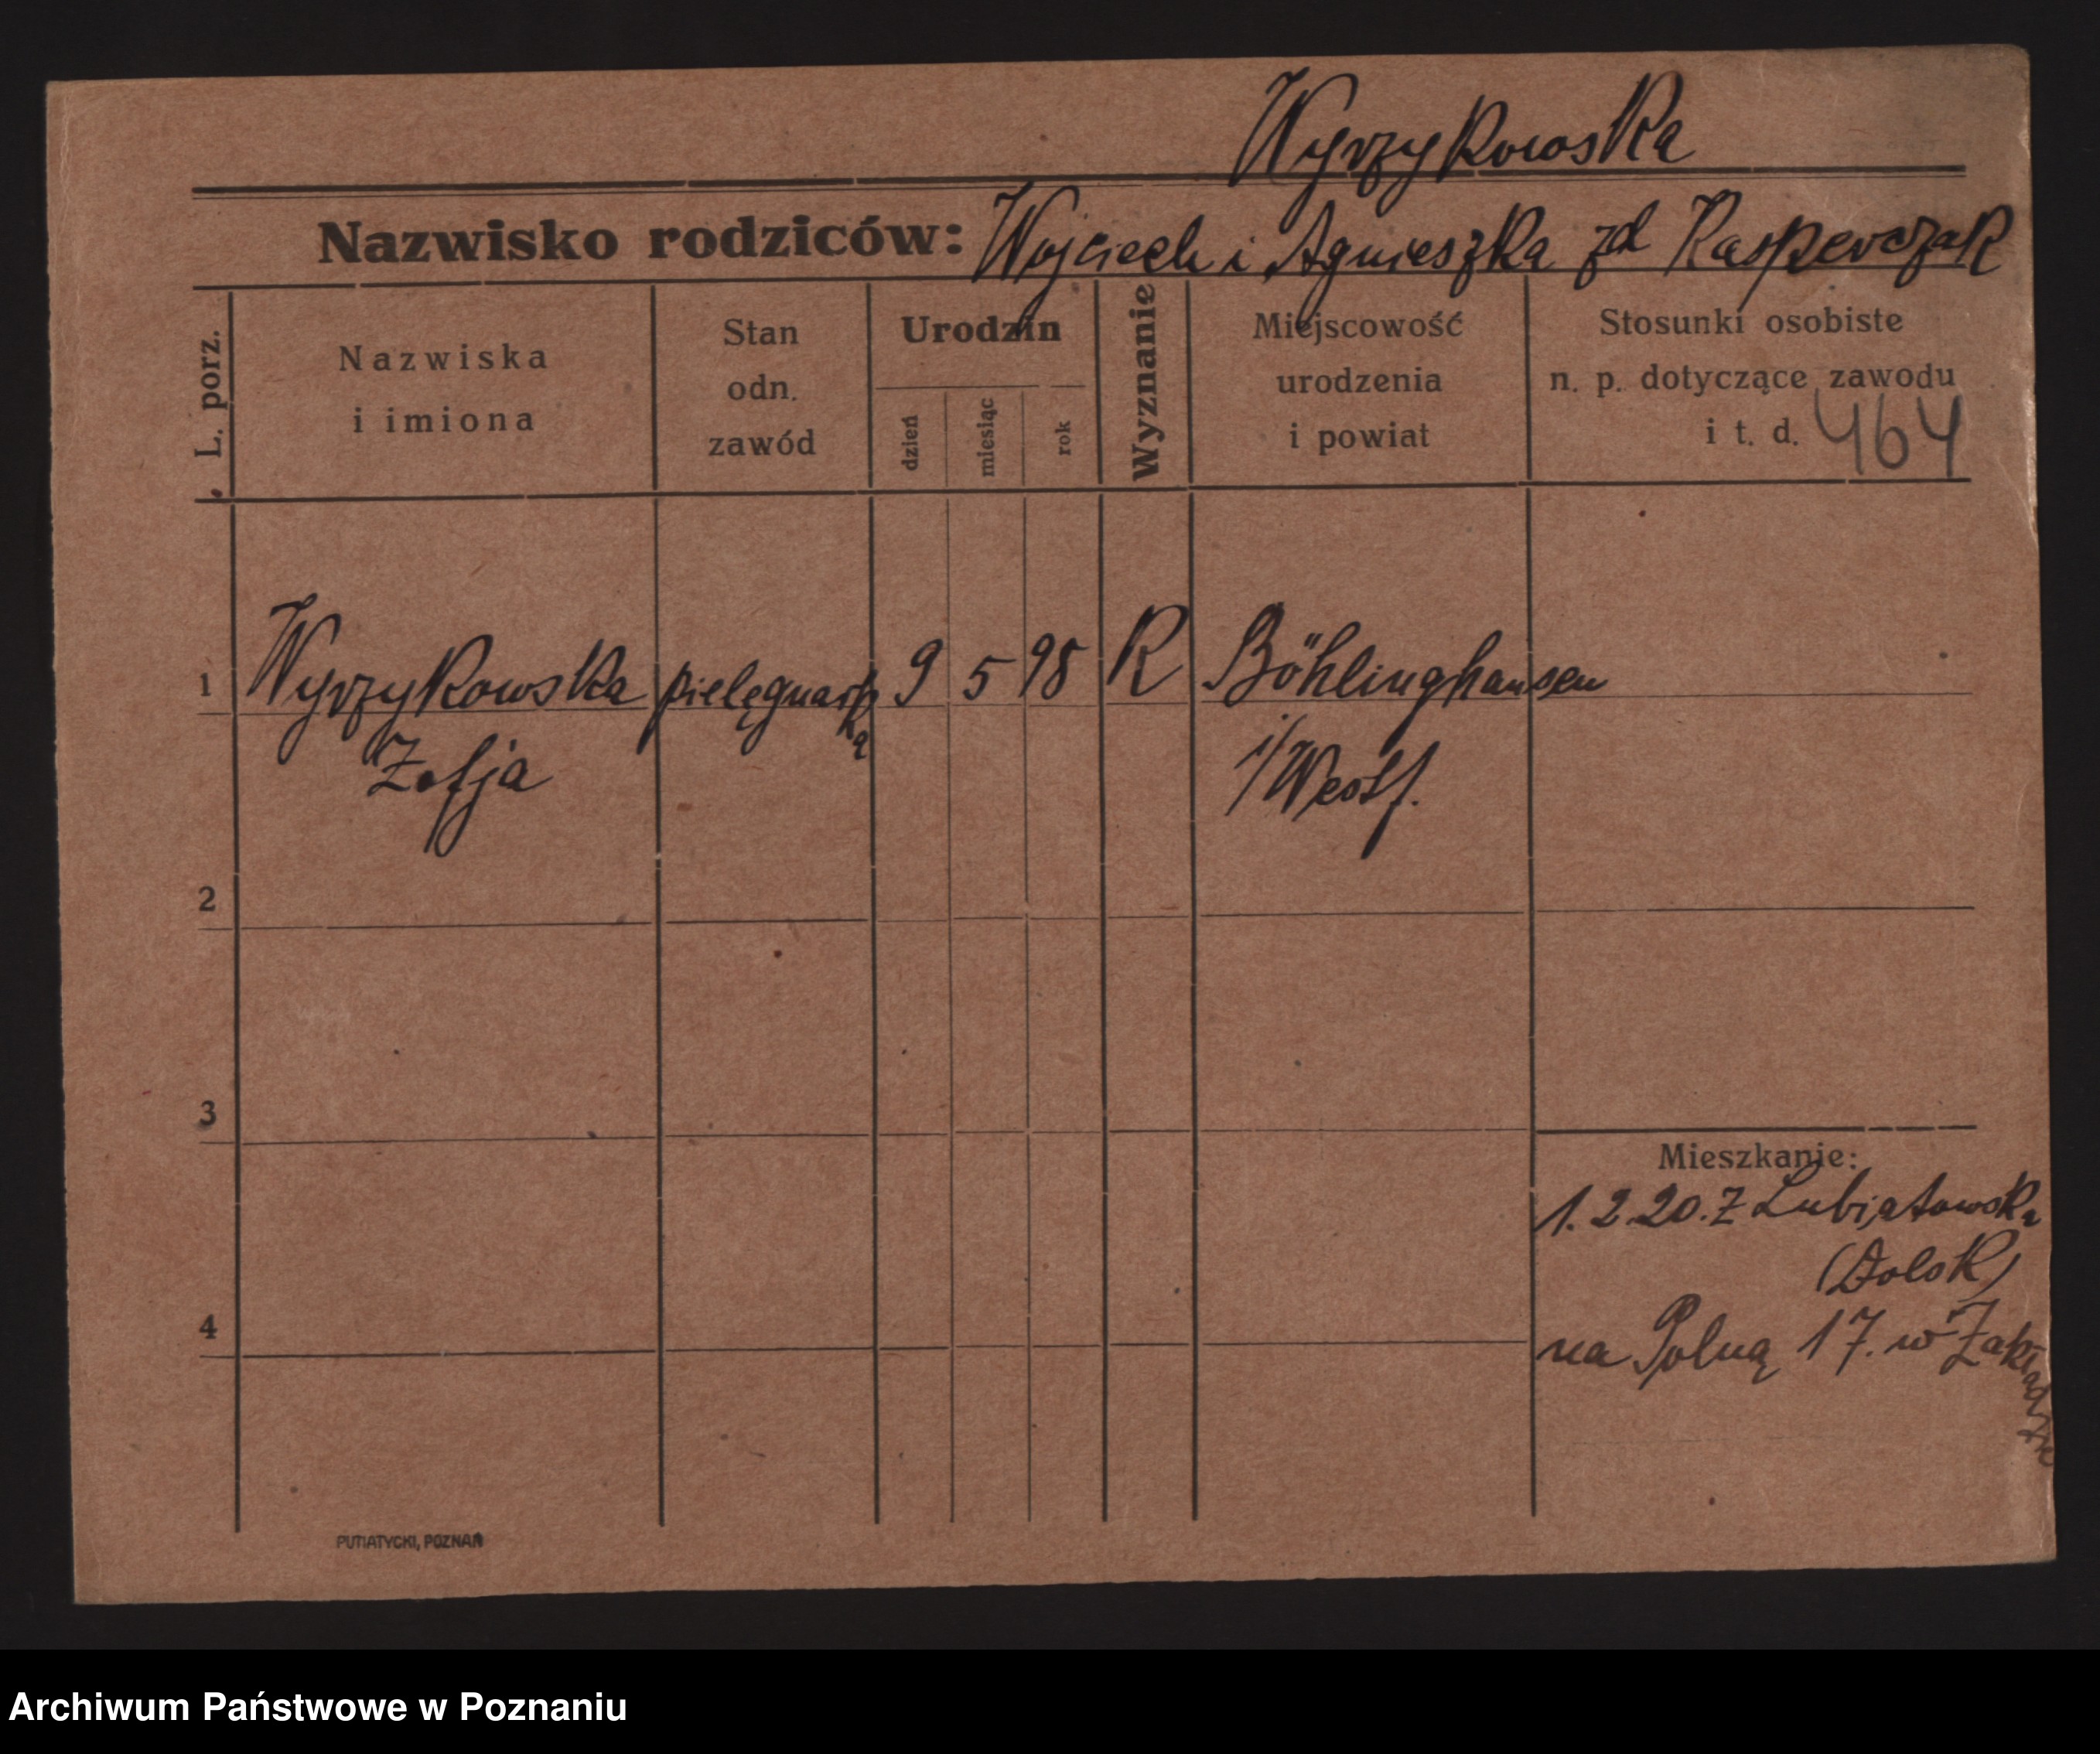 Wyrzykowska
Nazwisko rodziców: Wojciech i Agnieszka zd Kasperczak
L. porz.
Nazwiska
i imiona
Stan
odn.
zawód
Urodzin
dzień
miesiąc
rok
Wyznanie
Miejscowość
urodzenia
i powiat
Stosunki osobiste
n. p. dotyczące zawodu
i t. d. 464
1 Wyrzykowska pielęgniarka 9 5 98 R Böhlinghausen
Zofja i/Westf.
2
3
Mieszkanie:
1.2.20. Z Lubiatowska
(Dolsk)
4 na Polną 17. w Zakładzie
PUTIATYCKI, POZNAŃ
Archiwum Państwowe w Poznaniu